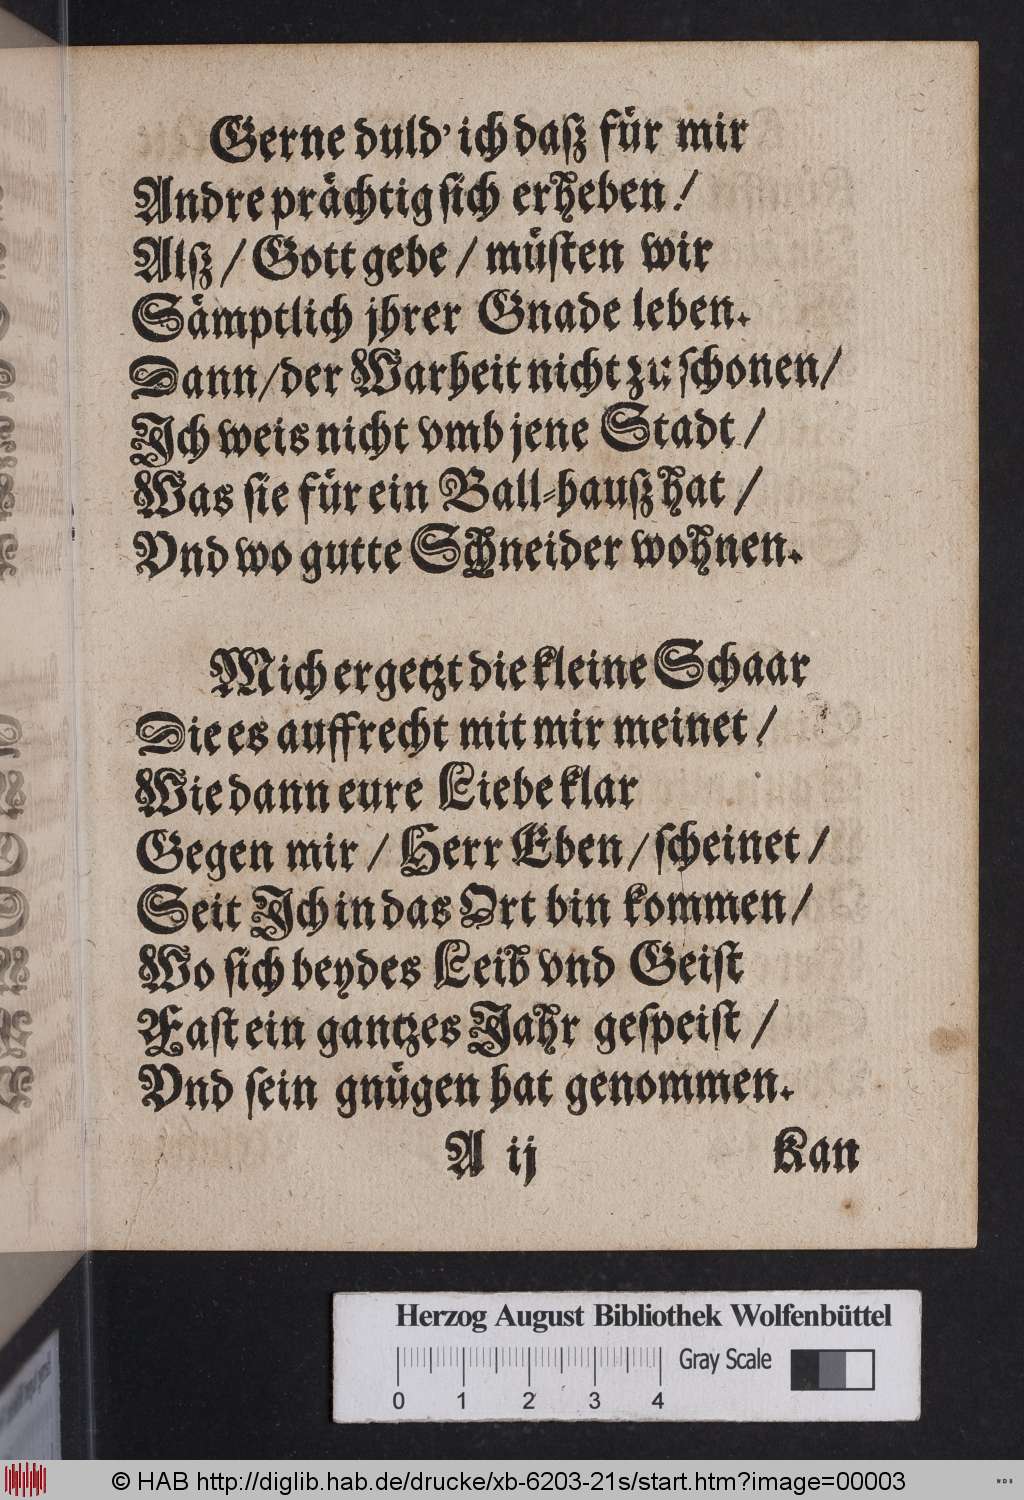 Gerne duld' ich daß für mir
Andre prächtig sich erheben!
Alß / Gott gebe / müsten wir
Sämptlich jhrer Gnade leben.
Dann / der Warheit nicht zu schonen /
Ich weis nicht vmb jene Stadt /
Was sie für ein Ball-hauß hat /
Vnd wo gutte Schneider wohnen.
Mich ergetzt die kleine Schaar
Die es auffrecht mit mir meinet /
Wie dann eure Liebe klar
Gegen mir / Herr Eben / scheinet /
Seit Ich in das Ort bin kommen /
Wo sich beydes Leib vnd Geist
Fast ein gantzes Jahr gespeist /
Vnd sein gnügen hat genommen.
A ij
Kan
Herzog August Bibliothek Wolfenbüttel
Gray Scale
0 1 2 3 4
© HAB http://diglib.hab.de/drucke/xb-6203-21s/start.htm?image=00003